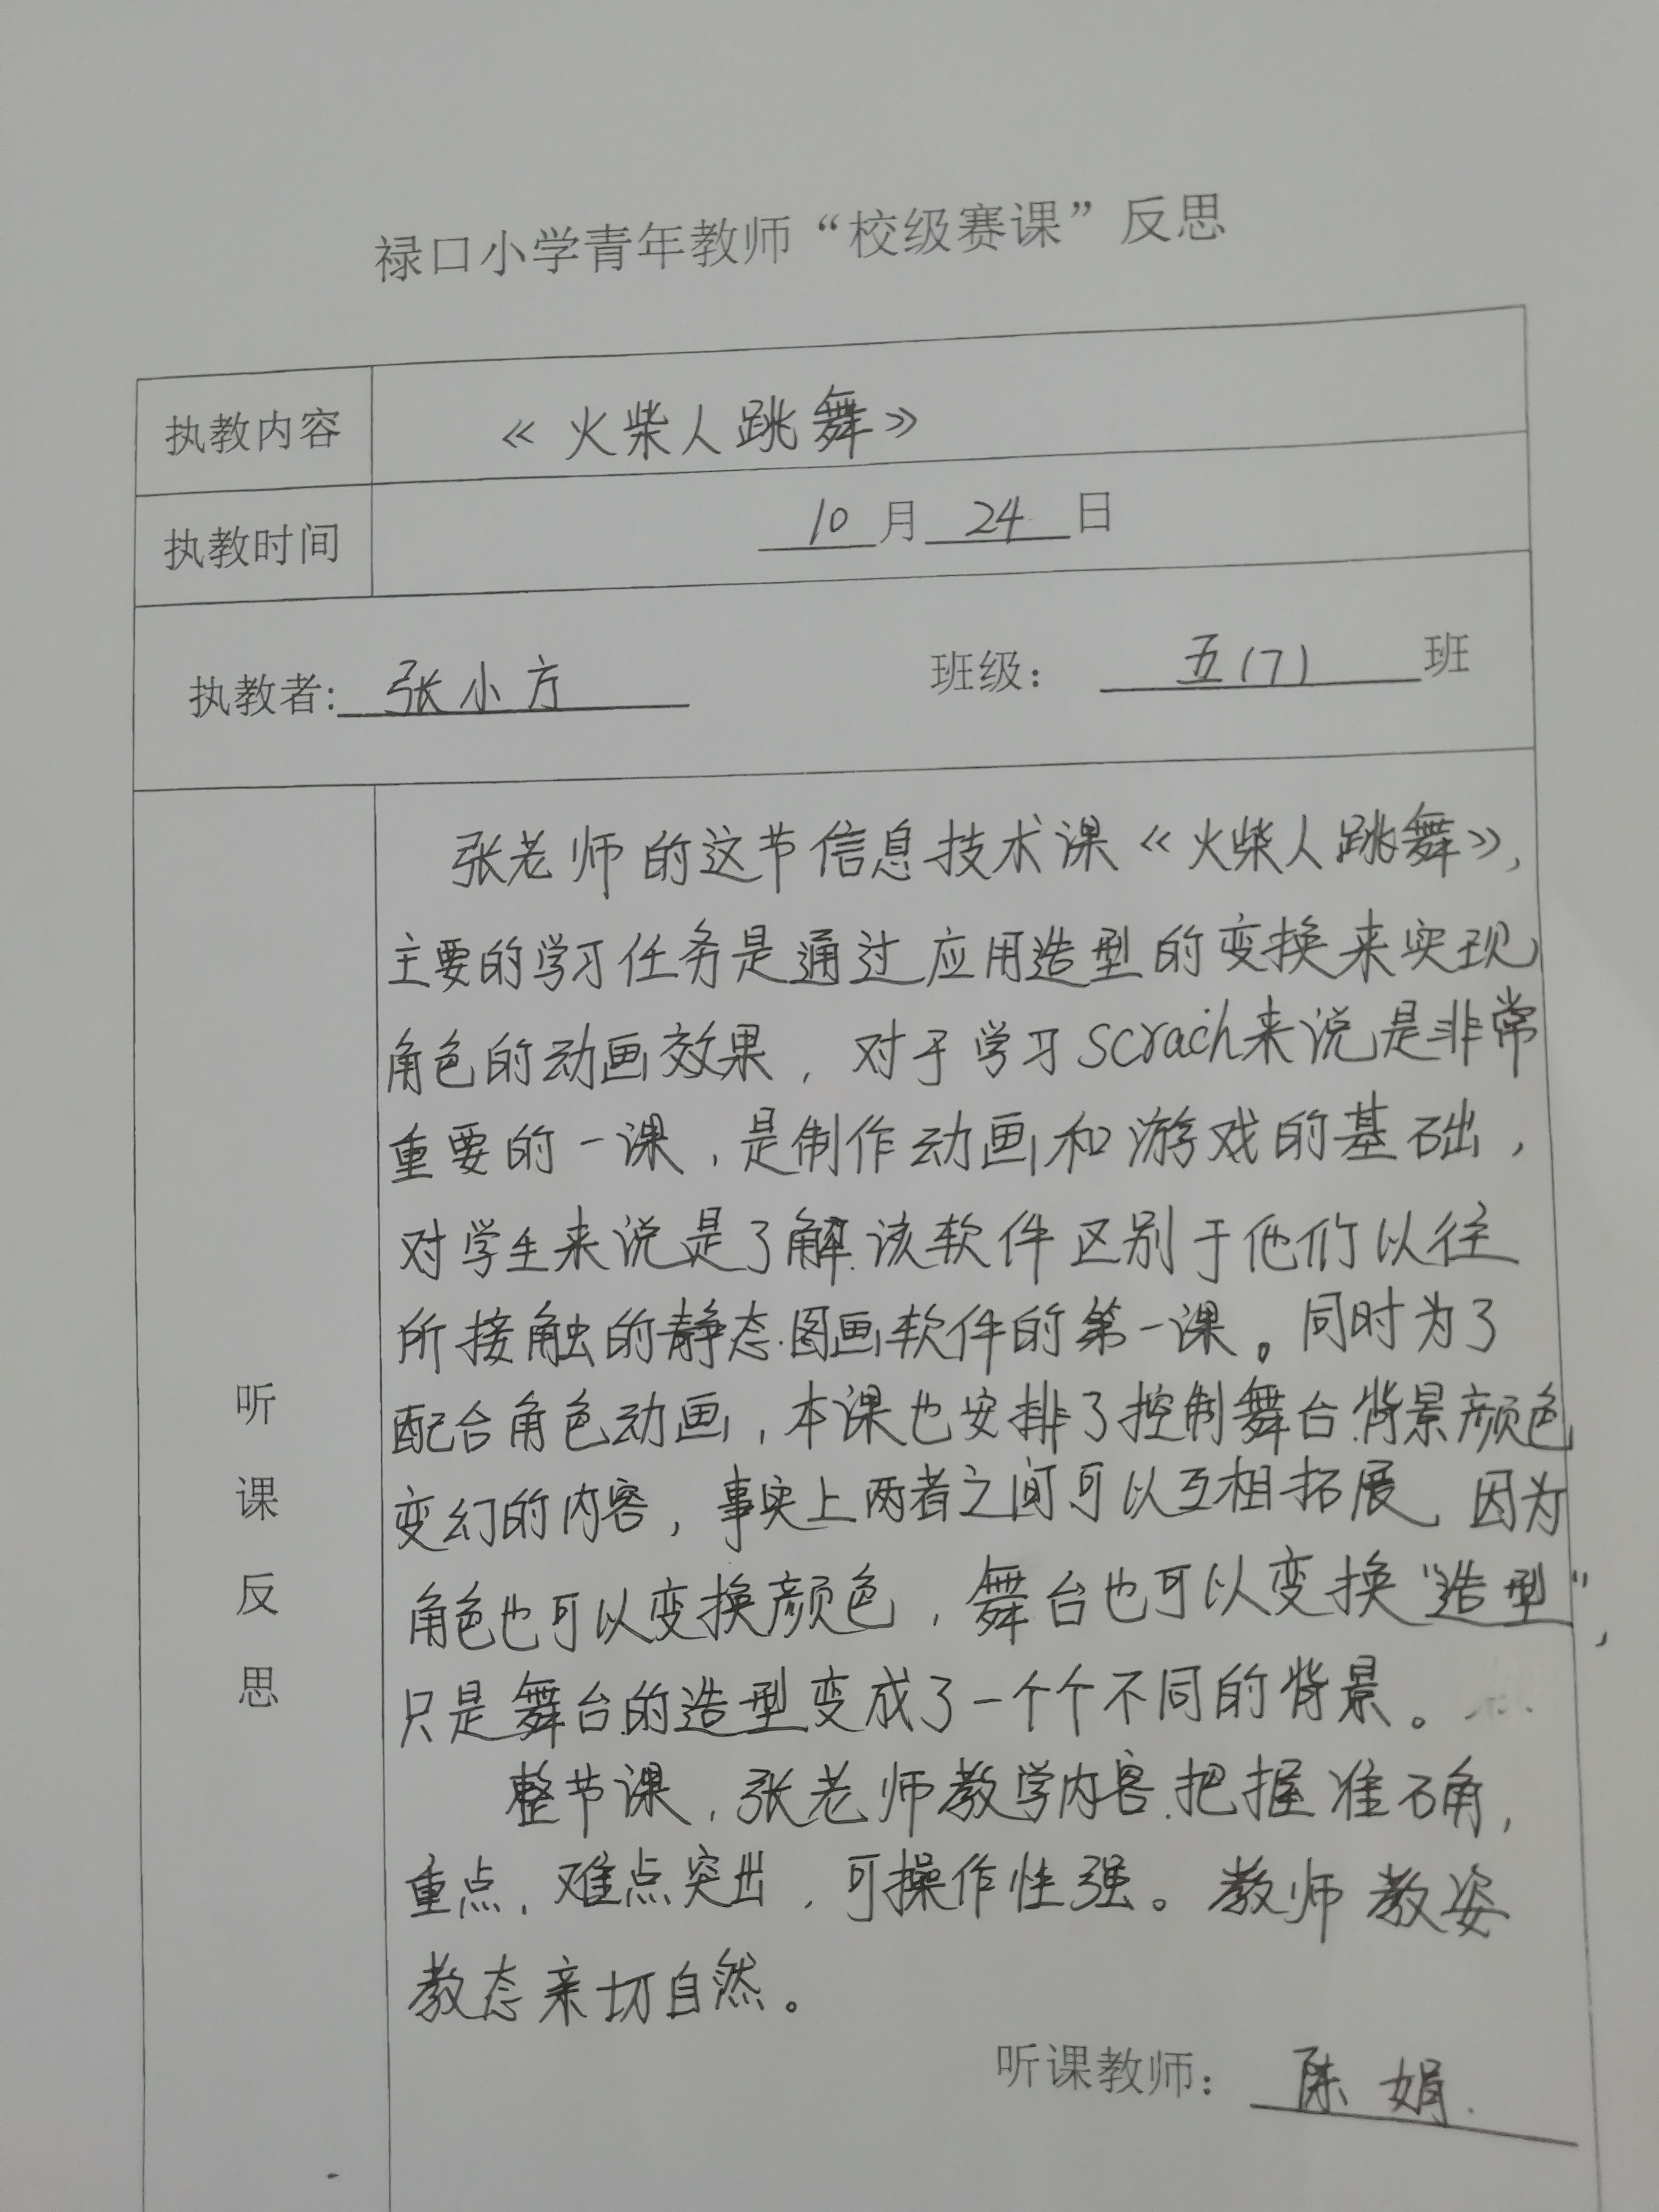 禄口小学青年教师“校级赛课”反思
执教内容 《火柴人跳舞》
执教时间 10月24日
执教者:张小方 班级：五(7)班
听课反思
张老师的这节信息技术课《火柴人跳舞》，
主要的学习任务是通过应用造型的变换来实现
角色的动画效果，对于学习scrach来说是非常
重要的一课，是制作动画和游戏的基础，
对学生来说是了解该软件区别于他们以往
所接触的静态图画软件的第一课。同时为了
配合角色动画，本课也安排了控制舞台背景颜色
变幻的内容，事实上两者之间可以互相拓展，因为
角色也可以变换颜色，舞台也可以变换“造型”，
只是舞台的造型变成了一个个不同的背景。
整节课，张老师教学内容把握准确，
重点、难点突出，可操作性强。教师教姿
教态亲切自然。
听课教师：陈娟.